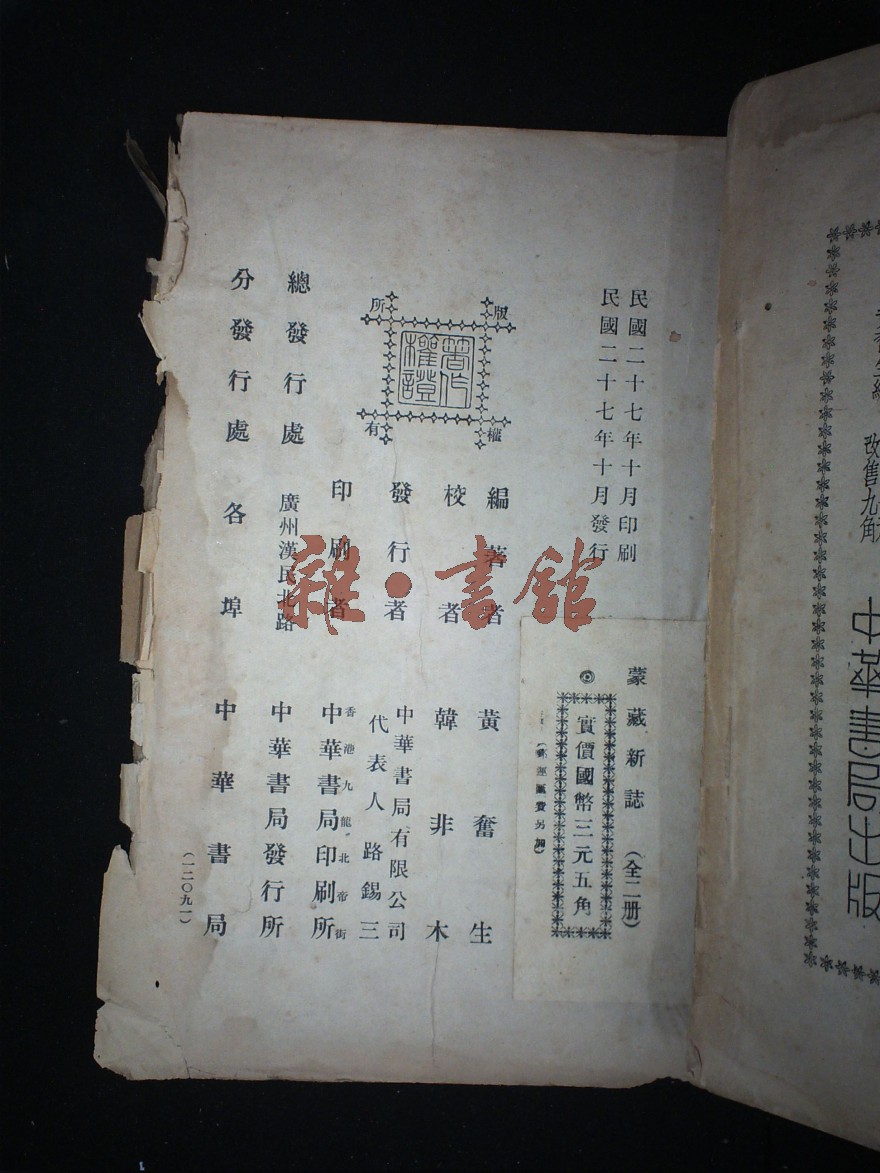 民國二十七年十月印刷
民國二十七年十月發行
蒙藏新誌（全二冊）
◎實價國幣三元五角
版權所有
著作權證
編著者 黃奮生
校者 韓非木
發行者 中華書局有限公司
代表人 路錫三
印刷者 香港九龍北帝街
中華書局印刷所
總發行處 廣州漢民北路 中華書局發行所
分發行處 各埠 中華書局
（一二〇九一）
雜·書館
改售九角
中華書局出版